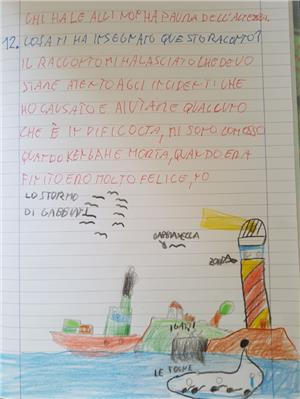 CHI HA LE ALI NON HA PAURA DELL'ALTEZZA.
12. COSA TI HA INSEGNATO QUESTO RACONTO?
IL RACCONTO MI HA LASCIATO CHE DEVO
STARE ATENTO AGLI INCIDENTI CHE
HO CAUSATO E AIUTARE QUALCUNO
CHE È IN DIFICOLTA, MI SONO COMOSSO
QUANDO KENGAH E MORTA, QUANDO ERA
FINITO ERO MOLTO FELICE,
LO STORMO
DI GABBIANI
GABBIANELLA
ZORBA
I GATTI
LE FOGNE